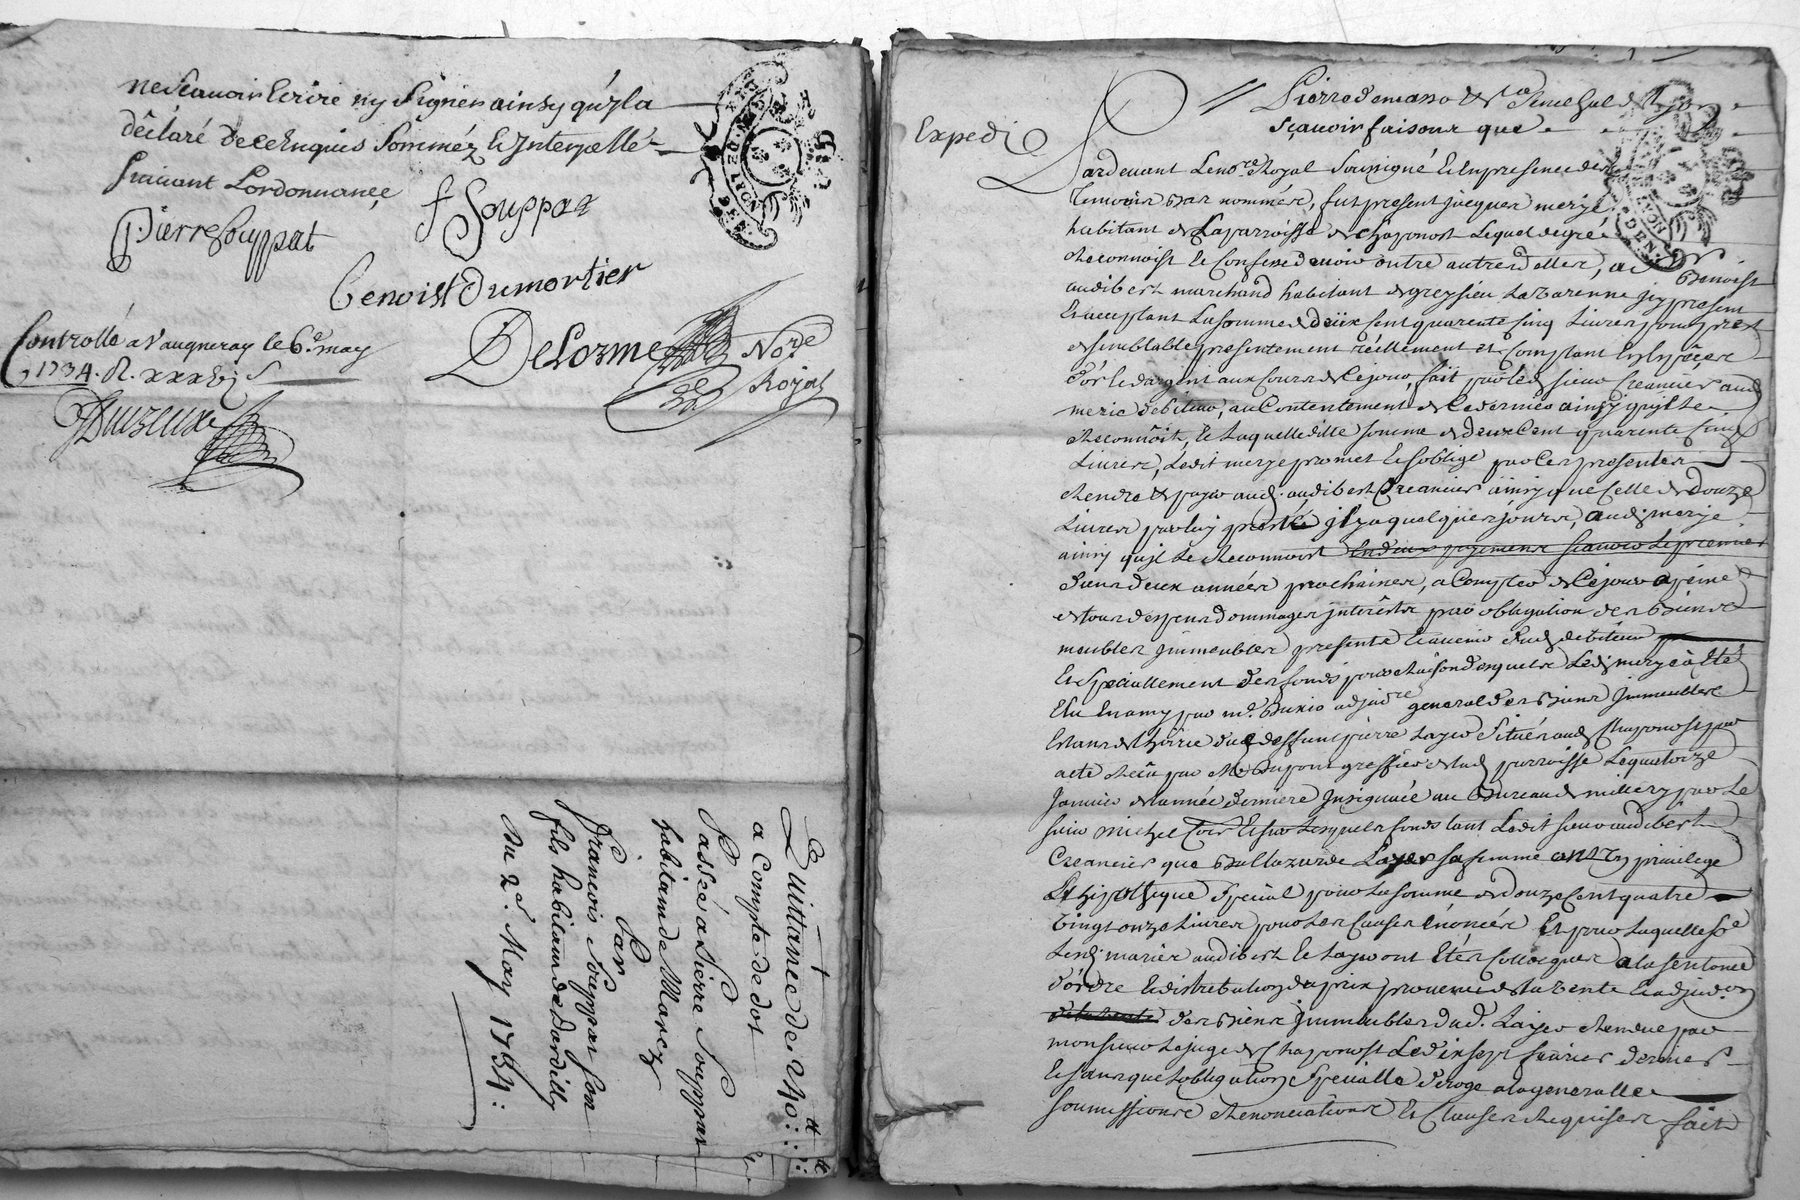 ne Scauoir Ecrire ny Signer ainsy qu'jla
déclaré de ce Enquis Sommé et Interpellé
Suiuant Lordonnance
f Souppat
pierre Souppat
Benoist Dumortier
Delorme Nore Royal
Controllé a Vaugneray le 6e may
1734. R. xxx
Quittance de 240
a Compte de dot
Passée a Pierre Souppat
habitant de Marcy
Par
Francois Souppat son
fils habitant de Dardilly
Du 2d. May 1734:
Expedi
Pierre de masso Senechal de Lyon
Sçauoir faisons que
Pardeuant Le nore Royal Soussigné Et En presence des
Temoins Bas nommés, fut present jacques merje
habitant de La parroisse de chaponost Lequel de gré
Reconnoist Et Confesse deuoir outre autres dettes, a Sr Benoist
audibert marchand habitant de greysieu La Varenne jcy present
Et acceptant La somme de deux cent quarente cinq Liures pour prest
semblable presentement réellement et Comptant En Especes
d'or Et dargent aux Cours de Ce jour, fait par led. sieur Creancier aud.
merje debiteur, au Contentement de Ce dernier ainsy qu'jl Le
Reconnôist, Et Laquelle ditte somme de deux Cent quarente Cinq
Liures, Ledit merje promet Et soblige par Ces presentes
Rendre Et payer aud. audibert Creancier ainsy que Celle de Douze
Liures par luy presté jl y a quelques jours, aud. merje
ainsy qu'jl Le Reconnoist En deux payemens scauoir Le premier
Dans deux années prochaines, a Compter de Ce jour a peine
de tous depens dommages jnterêsts par obligation de ses Biens
meubles jmmeubles presents Et auenir dud. debiteur
Et Speciallement des fonds pour Raison desquels Led. merje a Eté
Elu En amy par Mr. adjudre general des Biens Jmmeubles
Estans de L'hoirie dud. deffunt pierre Layer Situés aud. Chaponost par
acte Receu par Me Dupont greffier de lad. parroisse Le quatorze
Januier de L'année derniere Jnsignuée au Bureau de millery par Le
sieur michel Et sur Lesquels fonds tant Ledit sieur audibert
Creancier que Baltazarde Layer sa femme ont Un priuilege
Et hipotheque Special pour La somme de douze Cent quatre
Vingt onze Liures pour Les Causes Enoncées Et pour Laquelle Sе
Lesd. mariés audibert Et Layer ont Etés Colloqués a La Sentence
d'ordre Et distribution du prix prouenu de La Vente Et adjudon
des Biens Jmmeubles dud. Layer Rendue par
monsieur Le juge de Chaponost Le dix sept feurier dernier
Et sans que Lobligation Specialle deroge a La generalle
soumissions Renonciations Et Clauses Requises fait